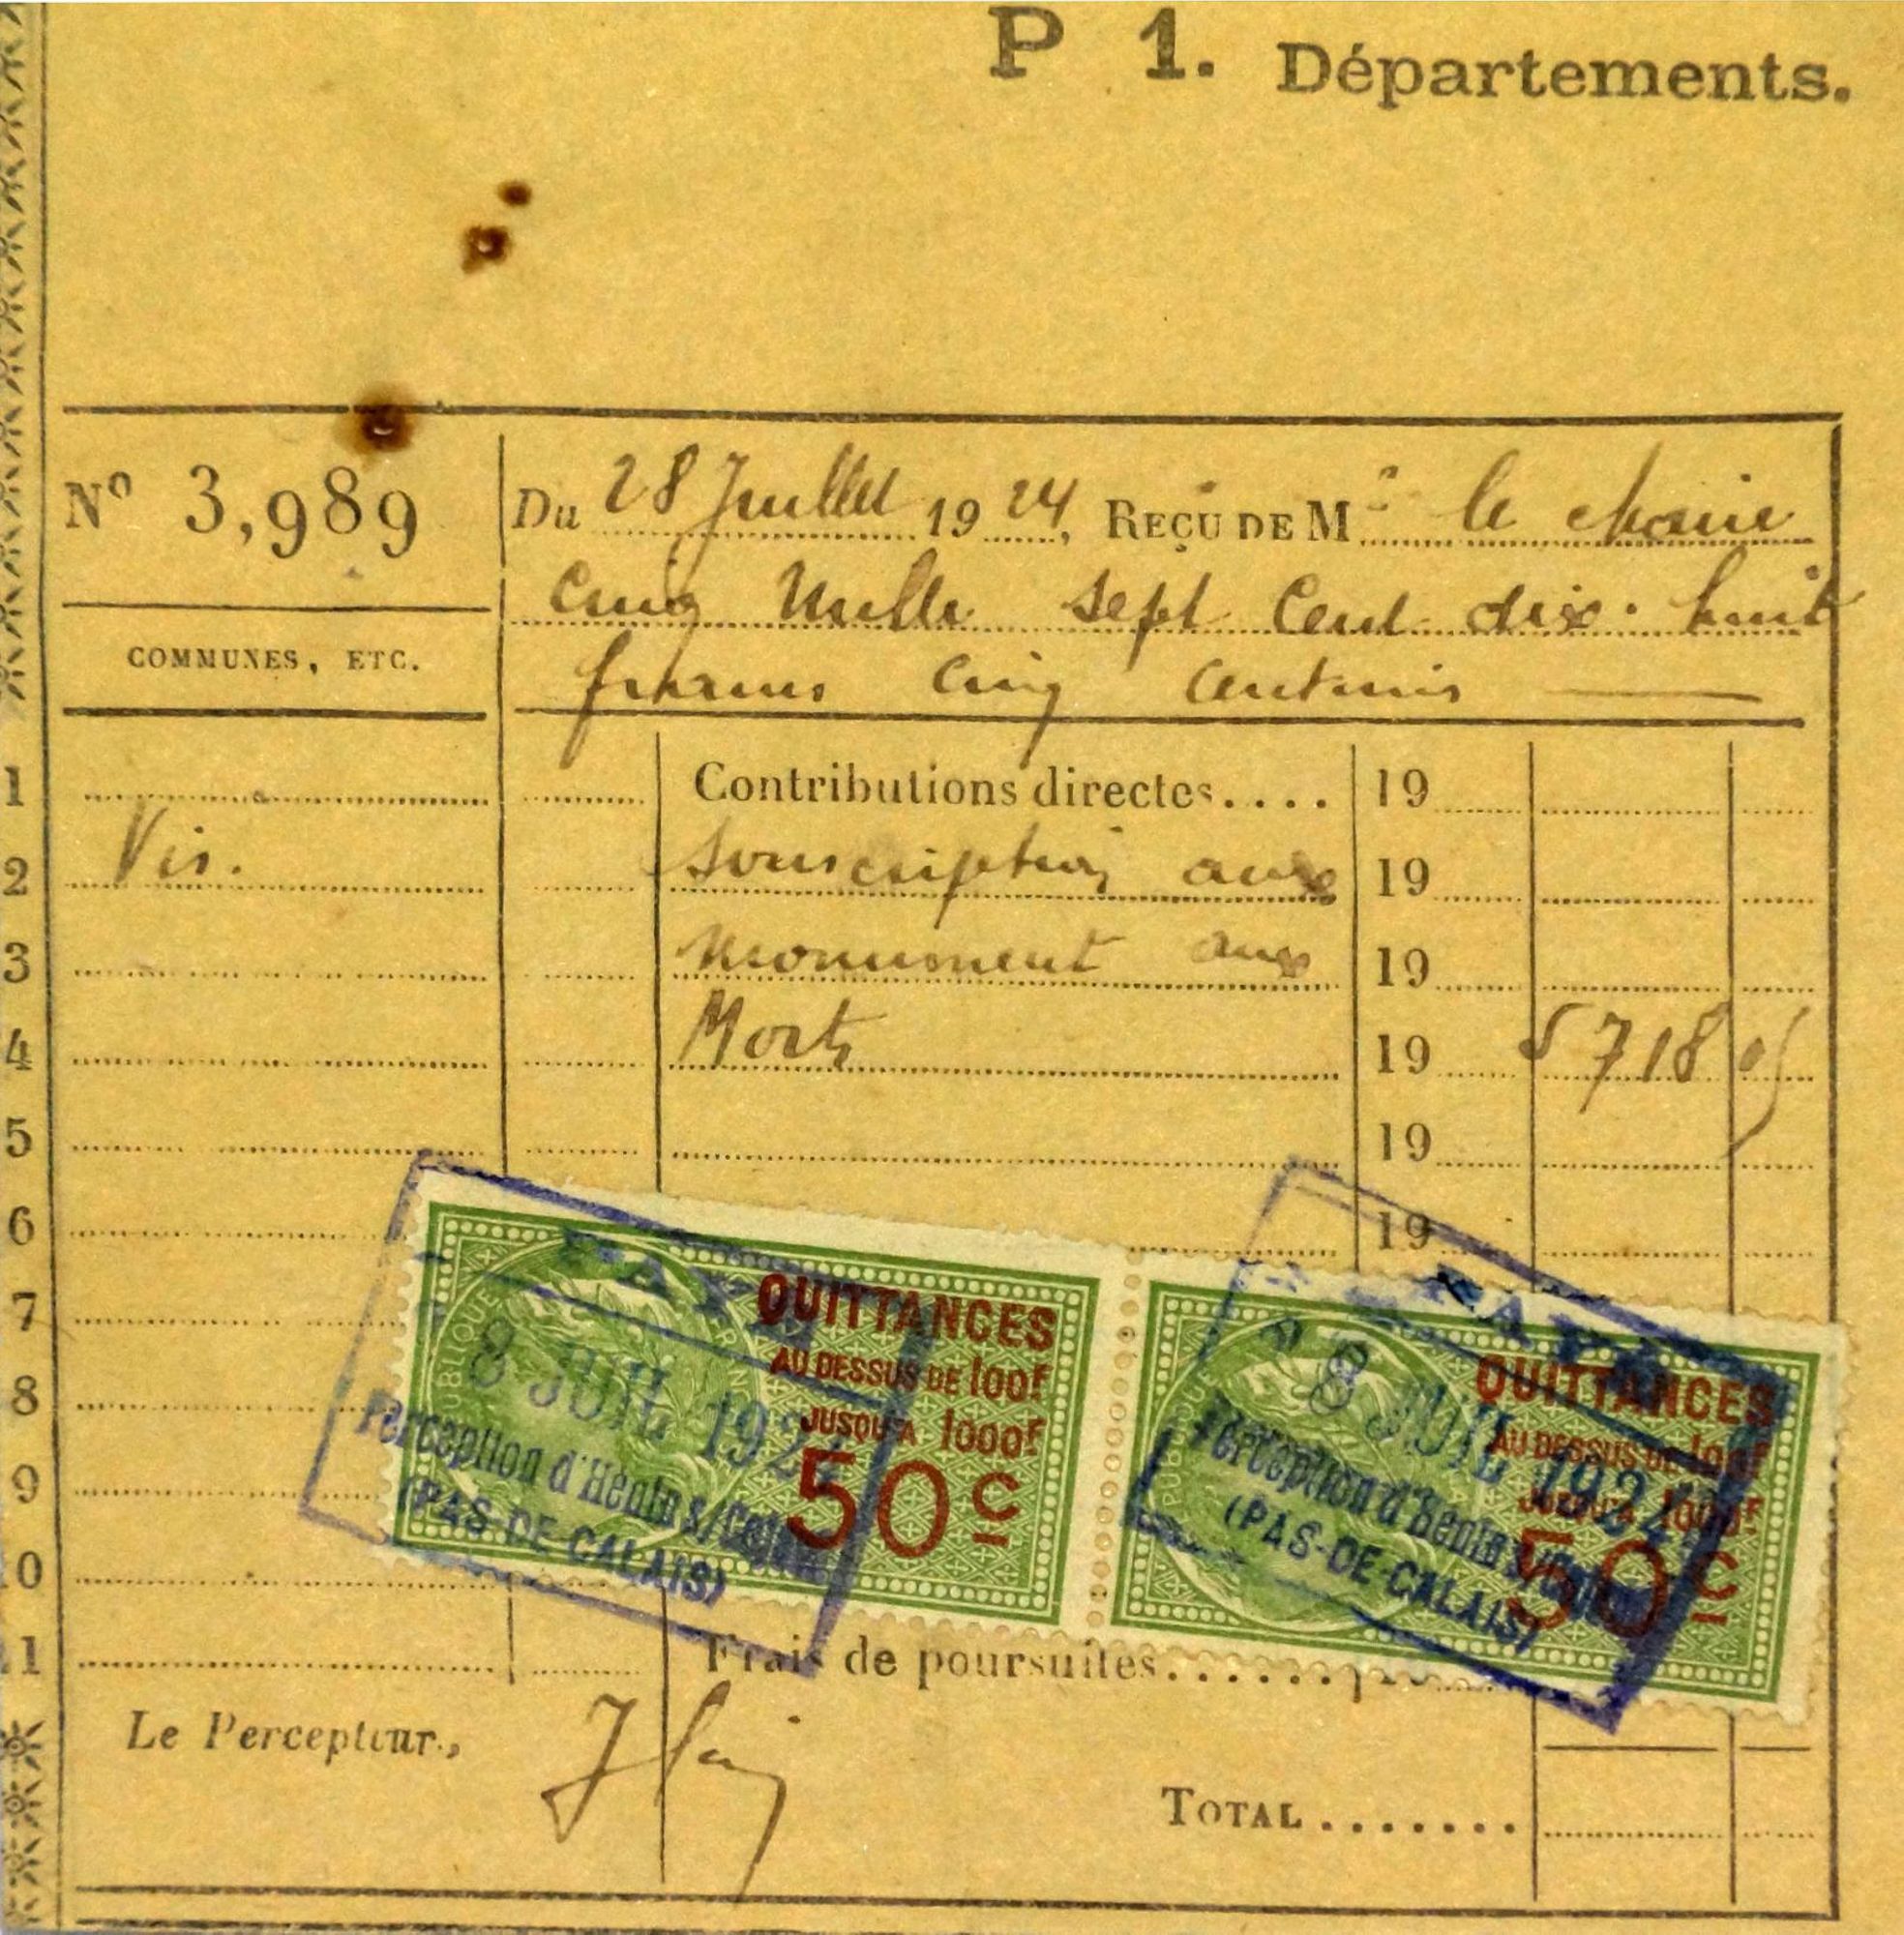 P 1. Départements.
Nº 3,989
Du 28 Juillet 1924, REÇU DE Mr le Maire
Cinq Mille sept Cent dix-huit
francs Cinq Centimes
COMMUNES, ETC.
1 Contributions directes.... 19
2 Vis. Souscription aux 19
3 monument aux 19
4 Morts 19 5718 05
5 19
6 19
7
8
9
10
11 Frais de poursuites......
PAYÉ
8 JUIL 1924
Perception d'Hénin s/Cojeul
(PAS-DE-CALAIS)
QUITTANCES
AU DESSUS DE 100F
JUSQU'A 1000F
50c
PUBLIQUE
PAYÉ
8 JUIL 1924
Perception d'Hénin s/Cojeul
(PAS-DE-CALAIS)
QUITTANCES
AU DESSUS DE 100F
JUSQU'A 1000F
50c
PUBLIQUE
Le Percepteur,
TOTAL.......